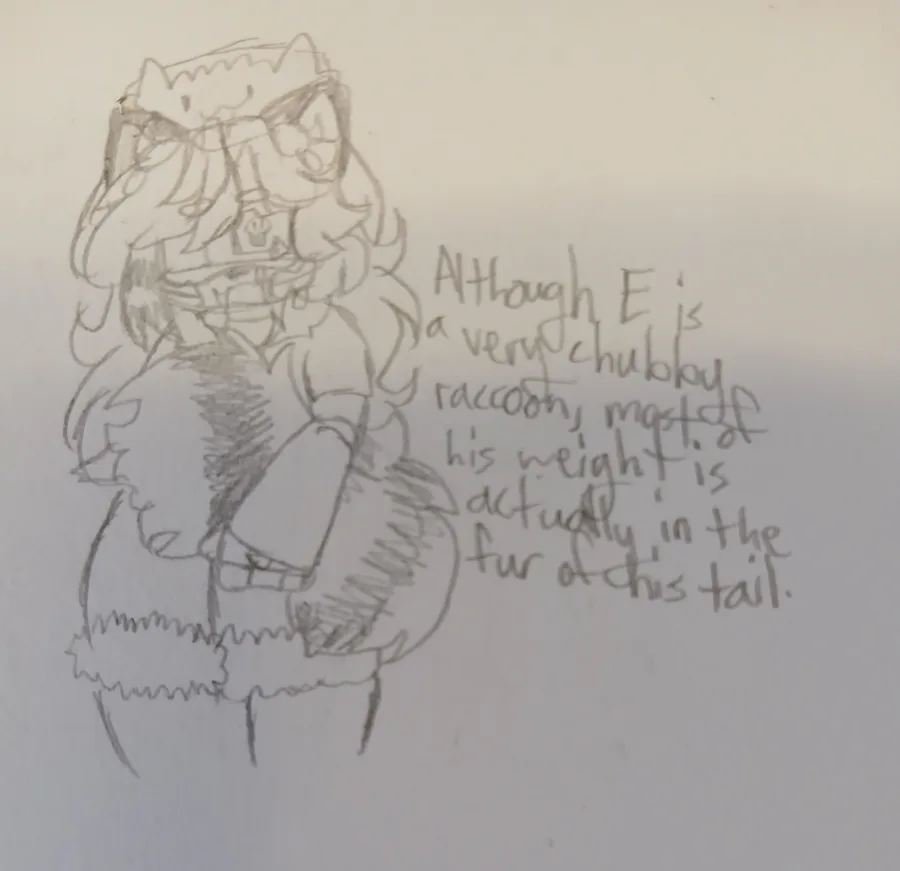 Although E is
a very chubby
raccoon, most of
his weight is
actually in the
fur of his tail.